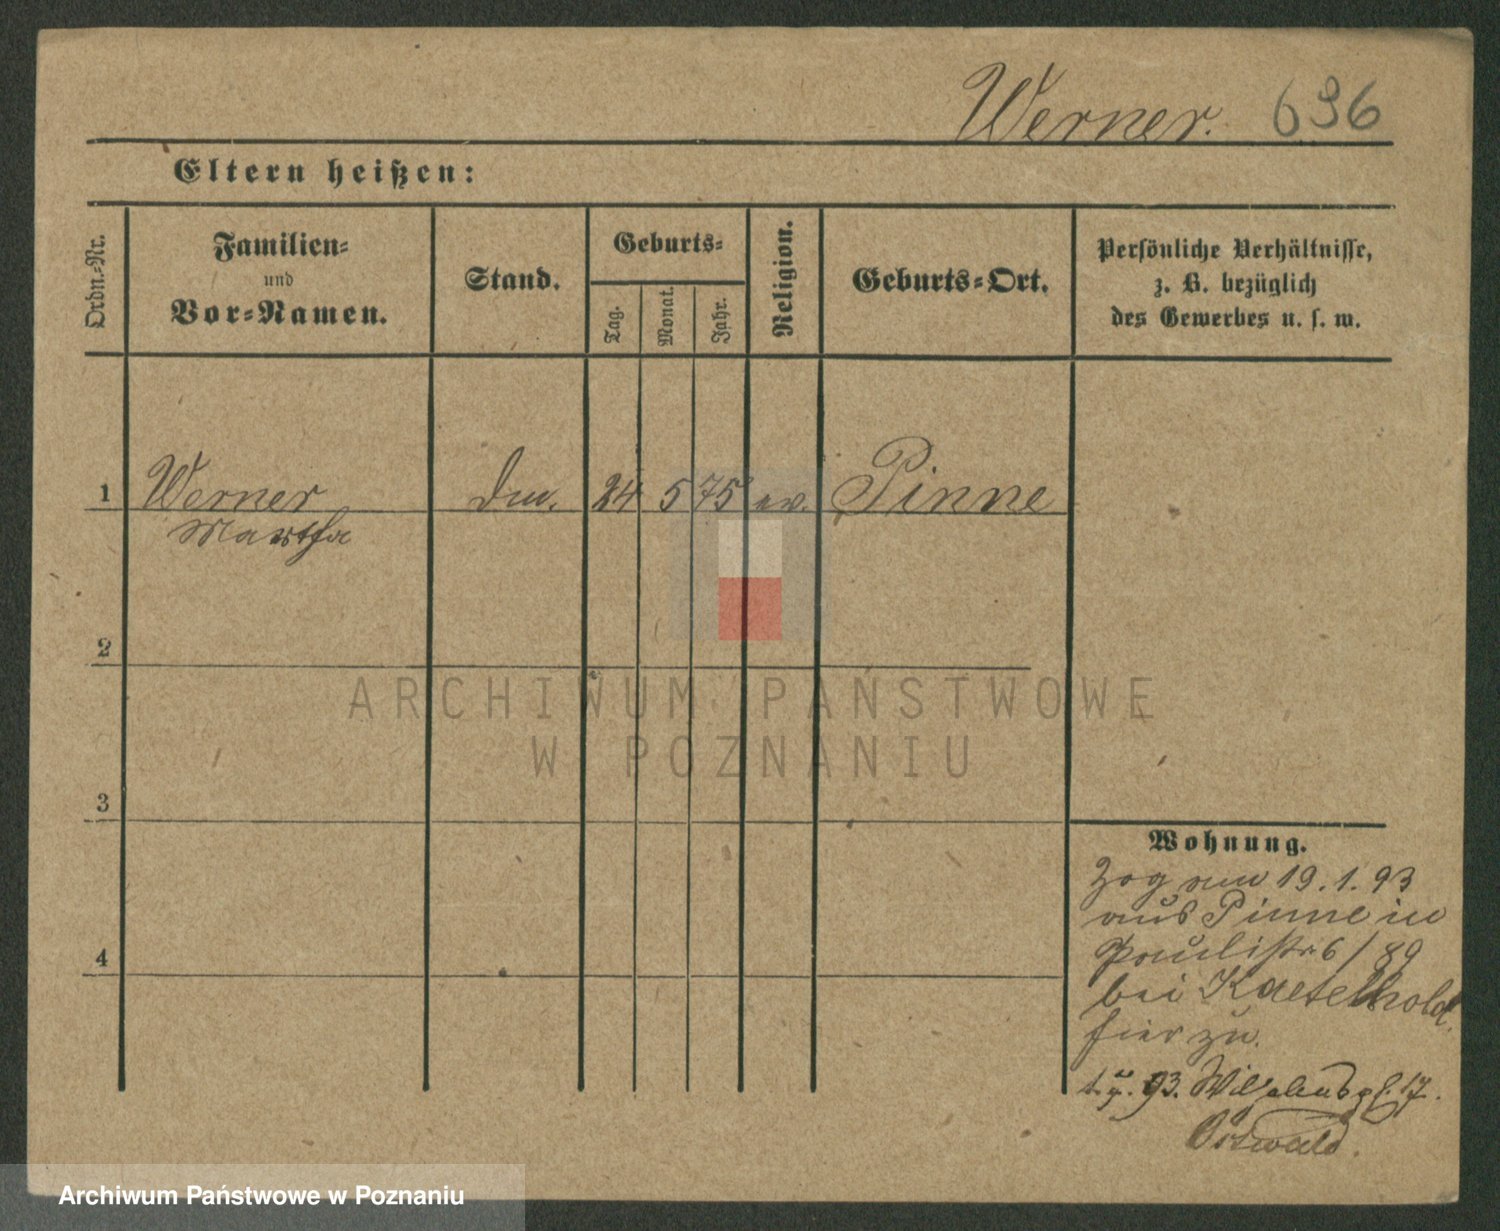 Werner. 636
Eltern heißen:
Ordn.-Nr.
Familien-
und
Vor-Namen.
Stand.
Geburts-
Tag.
Monat.
Jahr.
Religion.
Geburts-Ort.
Persönliche Verhältnisse,
z. B. bezüglich
des Gewerbes u. s. w.
1 Werner 24 5 75 ev. Pinne
Martha
2
3
4
ARCHIWUM PAŃSTWOWE
W POZNANIU
Wohnung.
Zog am 19.1.93
aus Pinne in
Paulistr 6/89
bei Kaetelhold
hier zu.
93. Wilhelmspl. 17.
Ostwald.
Archiwum Państwowe w Poznaniu